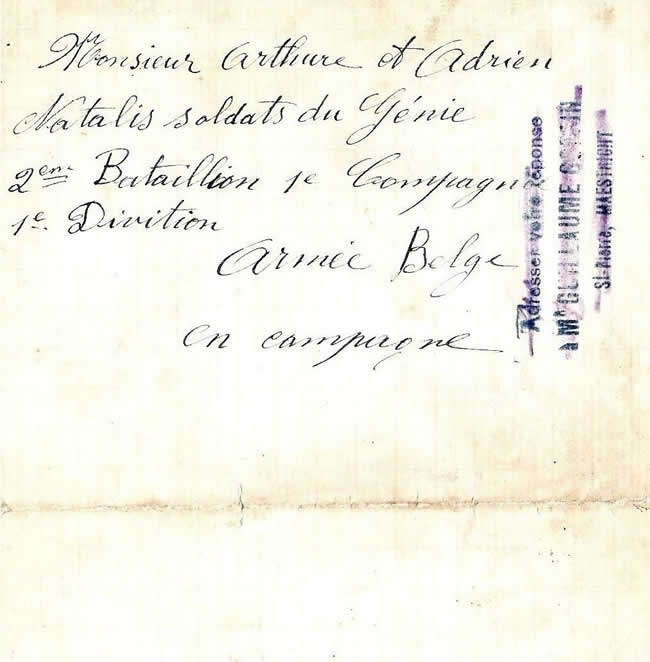 Monsieur Arthure et Adrien
Natalis soldats du Génie
2em Bataillion 1e Compagnie
1e. Divition
Armée Belge
en campagne
Adresser votre réponse
à Mr GUILLAUME
St-Pierre, MAESTRICHT